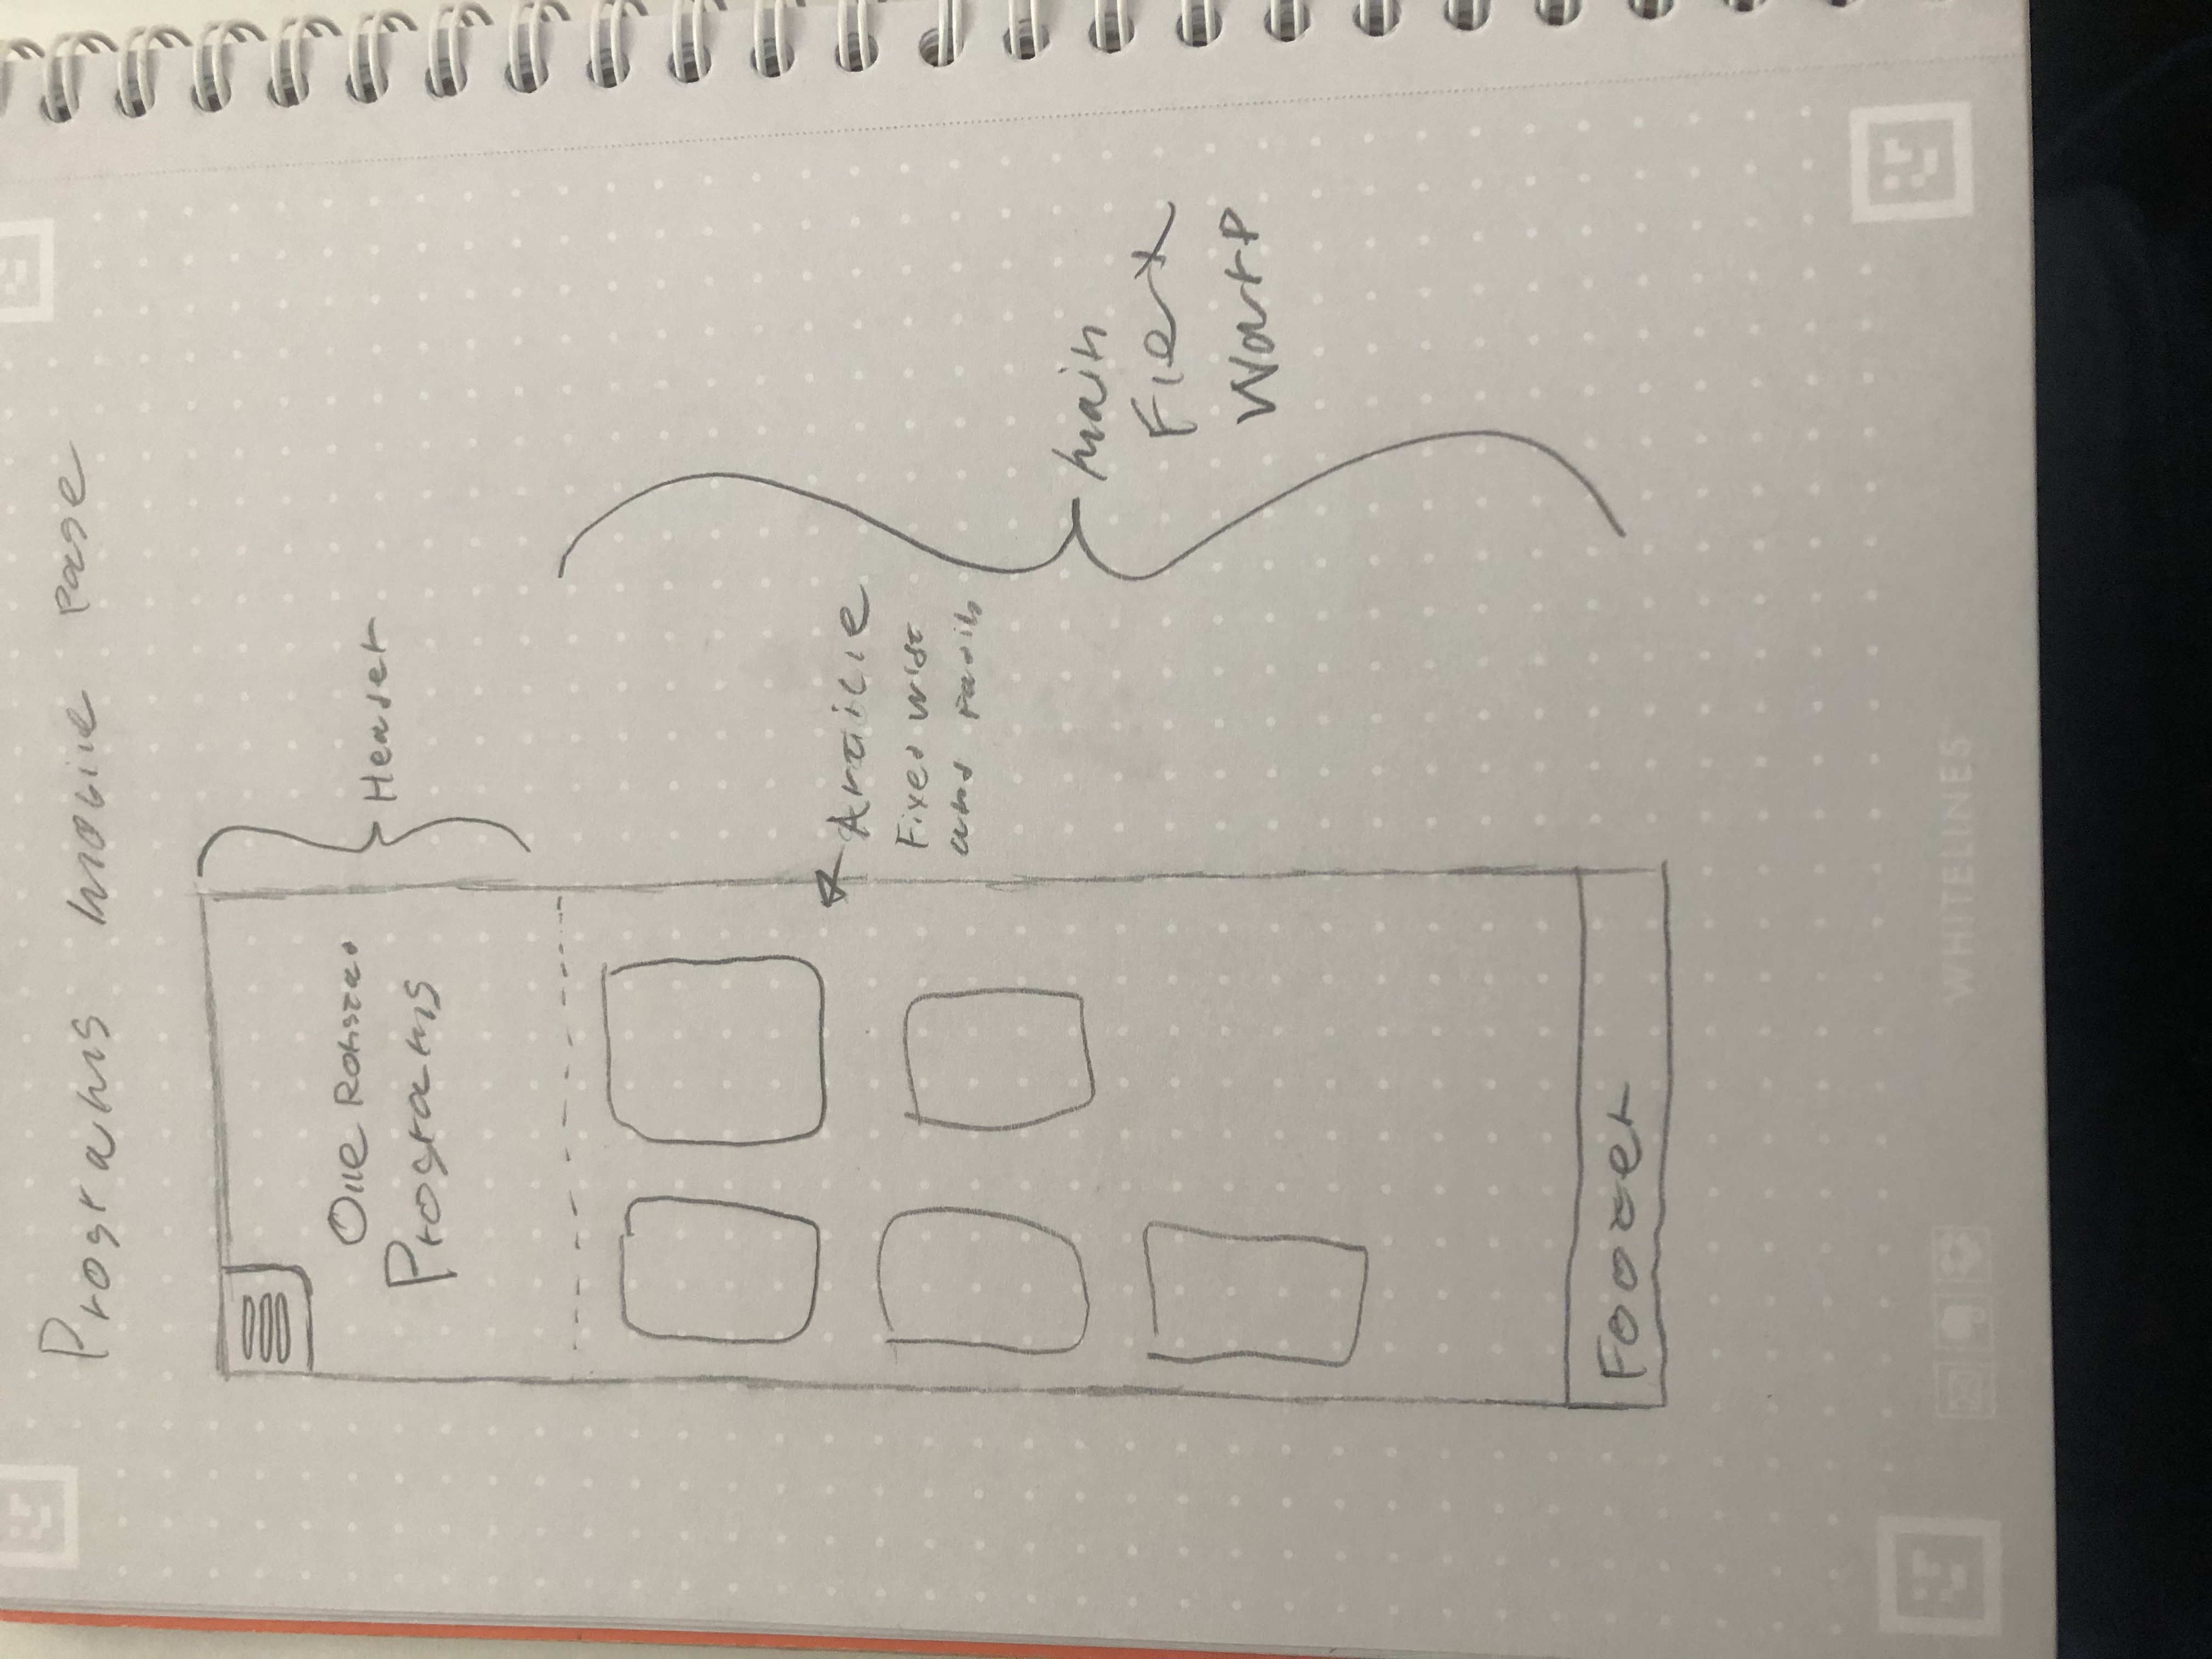 Programs mobile page
Olle Rohstad
Programs
Header
Article
Fixed widt
and
main
Flex
Warp
Footer
WHITELINES